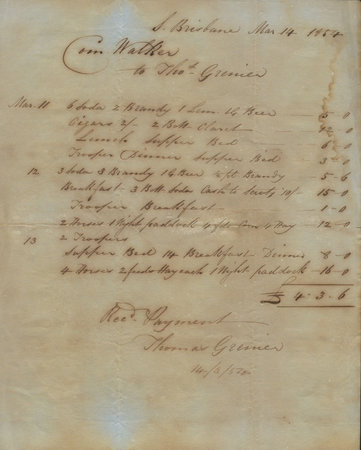 S. Brisbane Mar 14 1854
Com Walker
to Thos. Grenier
Mar. 11 6 Soda 2 Brandy 1 Lem. 16 Beer 15 - 0
Cigars 2/- 2 Bott Claret - 0
Lunch Supper Bed 6 - 0
Trooper Dinner Supper Bed 3 - 0
12 3 Soda 3 Brandy 16 Beer Brandy 5 - 6
Breakfast 3 Bott Soda Cash to 10/- 15 - 0
Trooper Breakfast 1 - 0
2 Horses 1 Night paddock 4 Hay 12 - 0
13 2 Troopers
Supper Bed 14 Breakfast Dinner 8 - 0
4 Horses 2 feeds Hay each 1 Night paddock 16 - 0
£ 4 - 3 - 6
Recd. Payment
Thomas Grenier
14/3/54